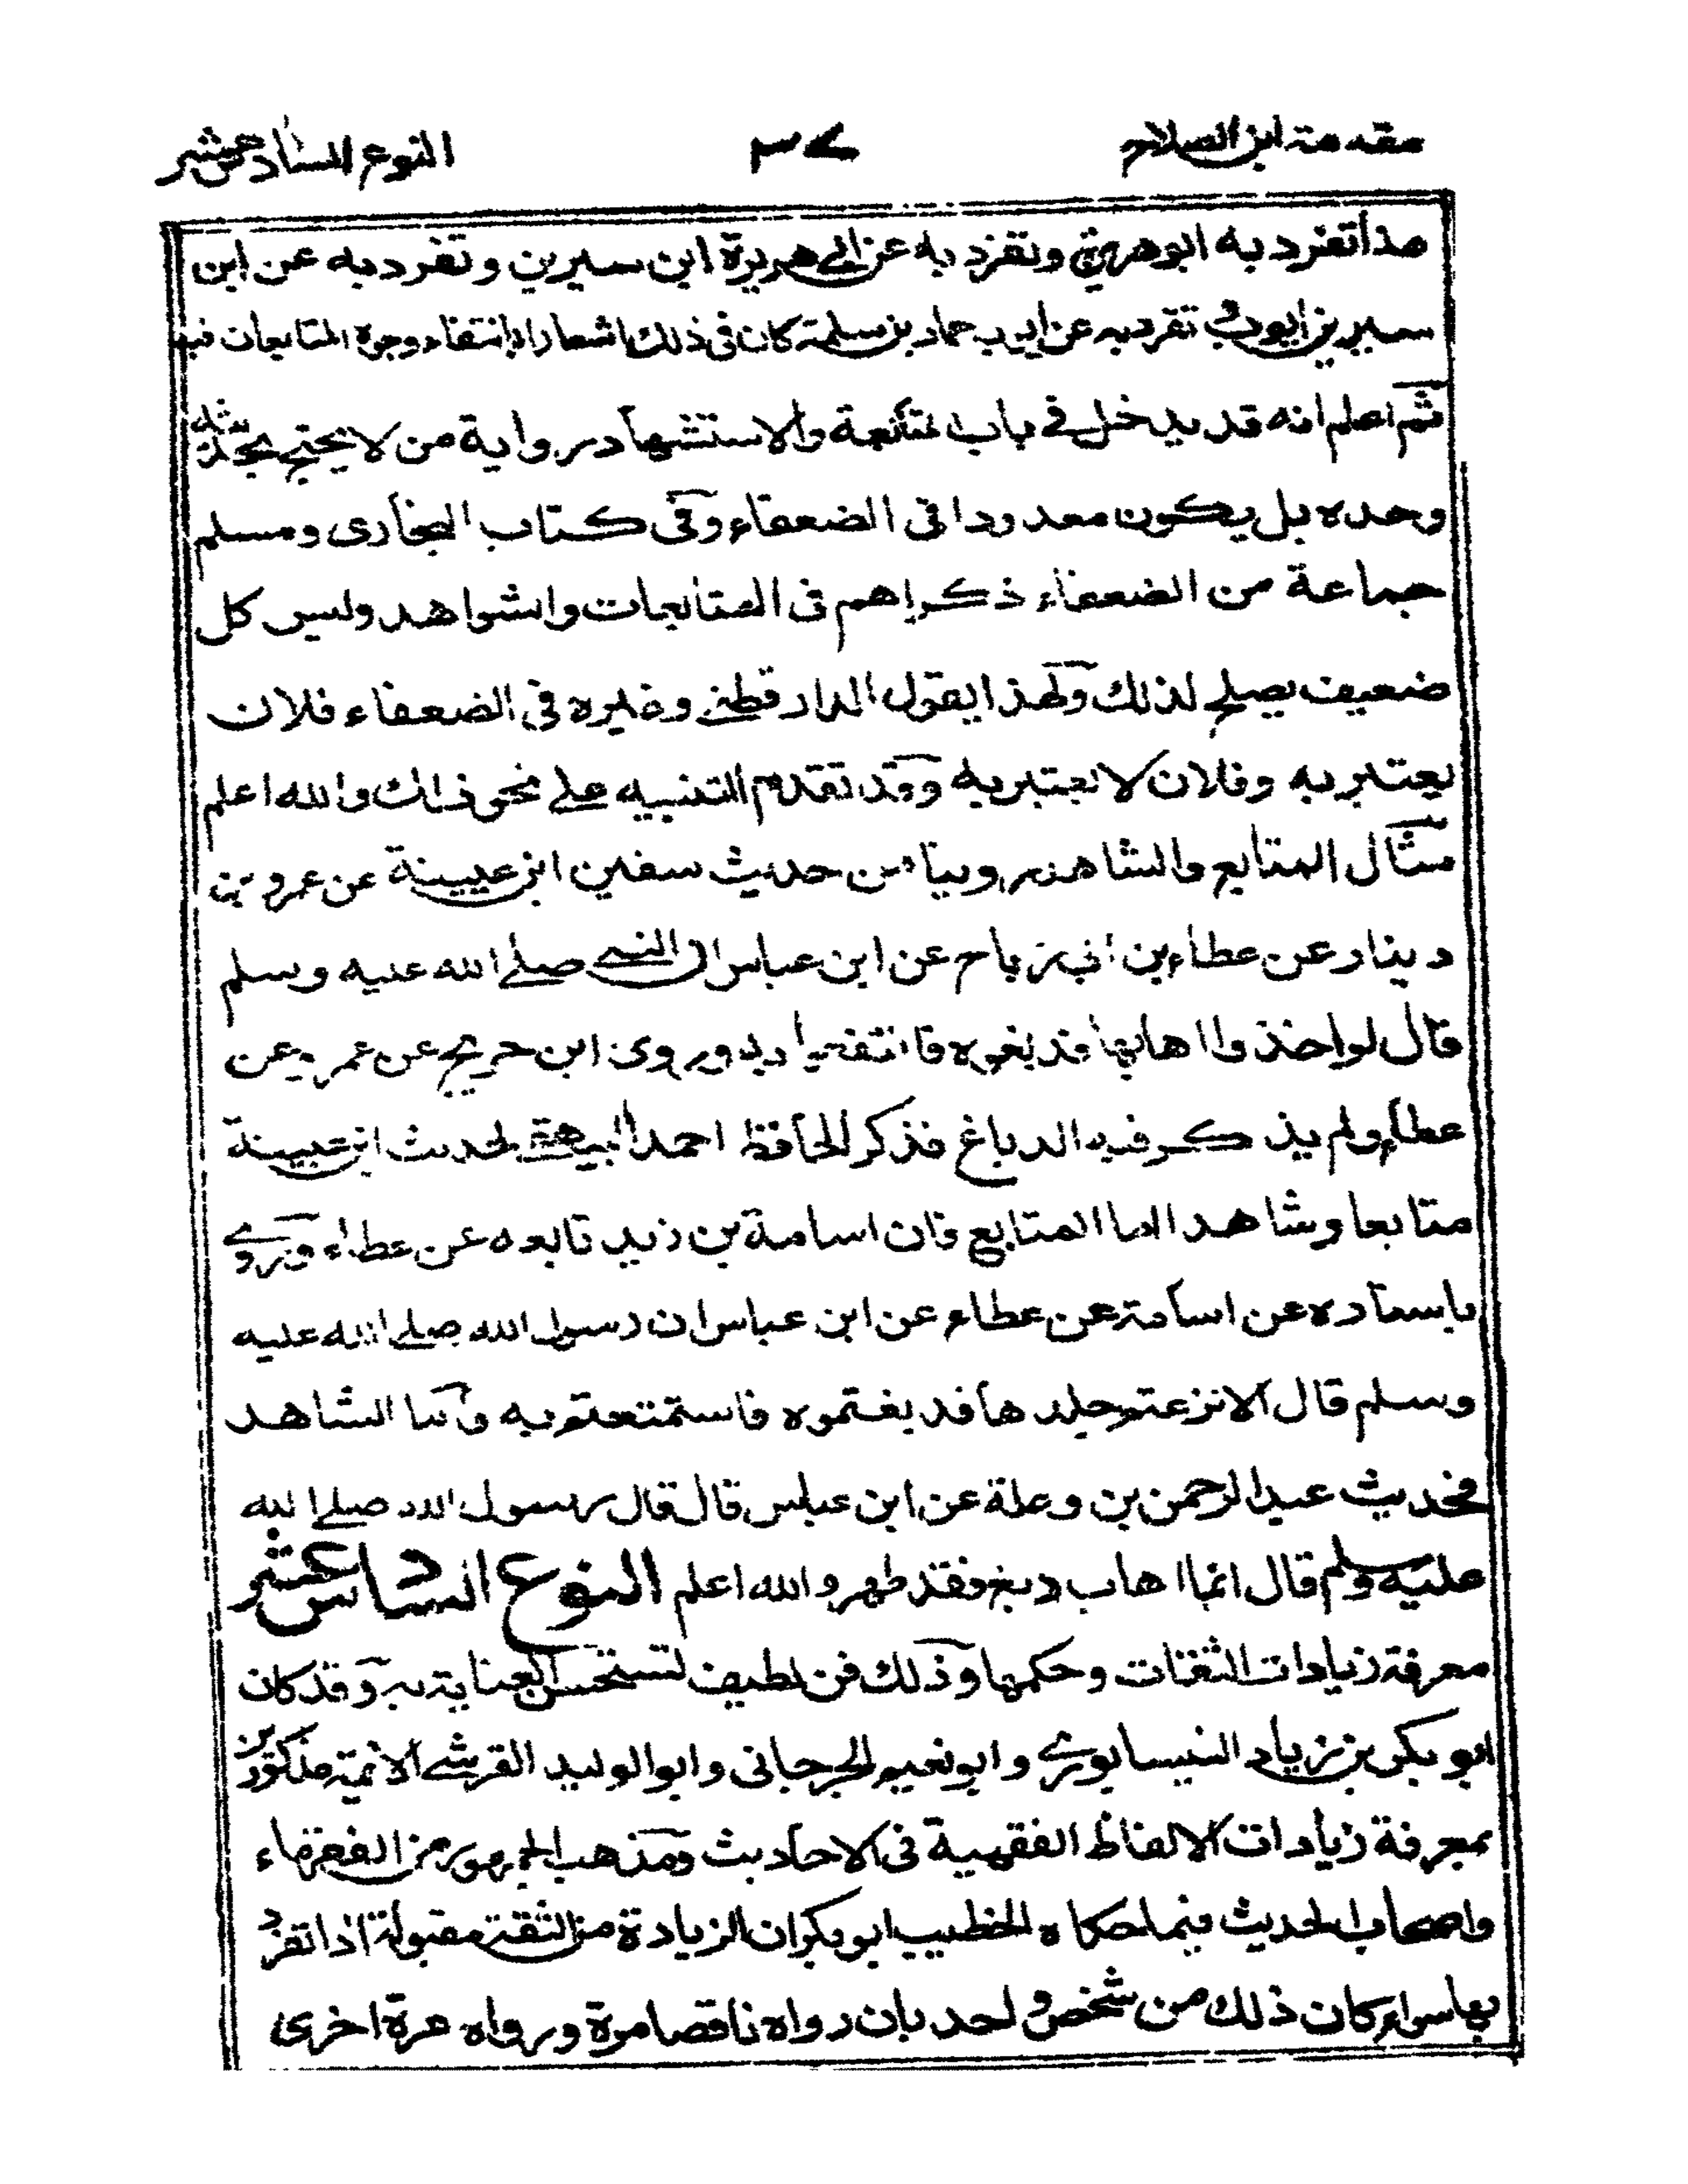 مقدمة ابن الصلاح ٣٧ النوع السادس عشر
هذا تفرد به ابوهريرة وتفرد به عن ابي هريرة ابن سيرين وتفرد به عن ابن
سيرين ايوب وتفرد به عن ايوب حماد بن سلمة كان في ذلك اشعار بانتفاء وجوه المتابعات فيه
ثم اعلم انه قد يدخل في باب المتابعة والاستشهاد رواية من لا يحتج بحديثه
وحده بل يكون معدودا في الضعفاء وفي كتاب البخارى ومسلم
جماعة من الضعفاء ذكراهم في المتابعات والشواهد وليس كل
ضعيف يصلح لذلك ولهذا يقول الدارقطني وغيره في الضعفاء فلان
يعتبر به وفلان لا يعتبر به وقد تقدم التنبيه على نحو ذلك والله اعلم
مثال المتابع والشاهد روينا من حديث سفين ابن عيينة عن عمرو بن
دينار عن عطاء بن ابي رباح عن ابن عباس ان النبي صلى الله عليه وسلم
قال لو اخذوا اهابها فدبغوه فانتفعوا به وروى ابن جريج عن عمرو عن
عطاء ولم يذكر فيه الدباغ فذكر الحافظ احمد البيهقي لحديث ابن عيينة
متابعا وشاهدا اما المتابع فان اسامة بن زيد تابعه عن عطاء وروى
باسناده عن اسامة عن عطاء عن ابن عباس ان رسول الله صلى الله عليه
وسلم قال الا نزعتم جلدها فدبغتموه فاستمتعتم به واما الشاهد
فحديث عبد الرحمن بن وعلة عن ابن عباس قال قال رسول الله صلى الله
عليه وسلم قال ايما اهاب دبغ فقد طهر والله اعلم النوع السادس عشر
معرفة زيادات الثقات وحكمها وذلك فن لطيف تستحسن العناية به وقد كان
ابو بكر بن زياد النيسابوري وابو نعيم الجرجاني وابو الوليد القرشي الائمة مذكورين
بمعرفة زيادات الالفاظ الفقهية في الاحاديث ومذهب الجمهور من الفقهاء
واصحاب الحديث فيما حكاه الخطيب ابو بكر ان الزيادة من الثقة مقبولة اذا تفرد
بها سواء كان ذلك من شخص واحد بان رواه ناقصا مرة ورواه مرة اخرى